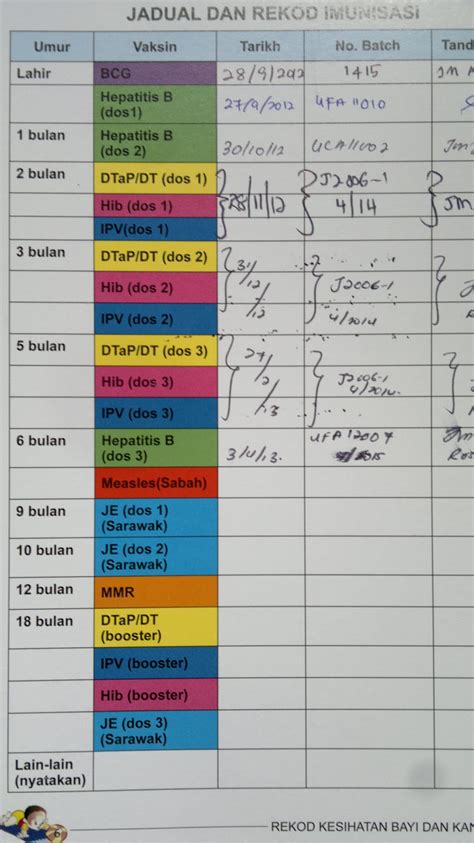 JADUAL DAN REKOD IMUNISASI
Umur Vaksin Tarikh No. Batch Tand
Lahir BCG 28/9/2012 1415 JM
Hepatitis B
(dos1) 27/9/2012 UFA 11010
1 bulan Hepatitis B
(dos 2) 30/10/12 UCA11002 Jm
2 bulan DTaP/DT (dos 1) J2006-1
Hib (dos 1) 28/11/12 4/14 JM
IPV(dos 1)
3 bulan DTaP/DT (dos 2) 31/
Hib (dos 2) 12/ J2006-1
IPV (dos 2) 12 4/2014
5 bulan DTaP/DT (dos 3) 27/
Hib (dos 3) 2/ J2006-1
4/2014
IPV (dos 3) /13
6 bulan Hepatitis B UFA12007
(dos 3) 3/4/13. 2015
Measles(Sabah)
9 bulan JE (dos 1)
(Sarawak)
10 bulan JE (dos 2)
(Sarawak)
12 bulan MMR
18 bulan DTaP/DT
(booster)
IPV (booster)
Hib (booster)
JE (dos 3)
(Sarawak)
Lain-lain
(nyatakan)
6
REKOD KESIHATAN BAYI DAN KAN